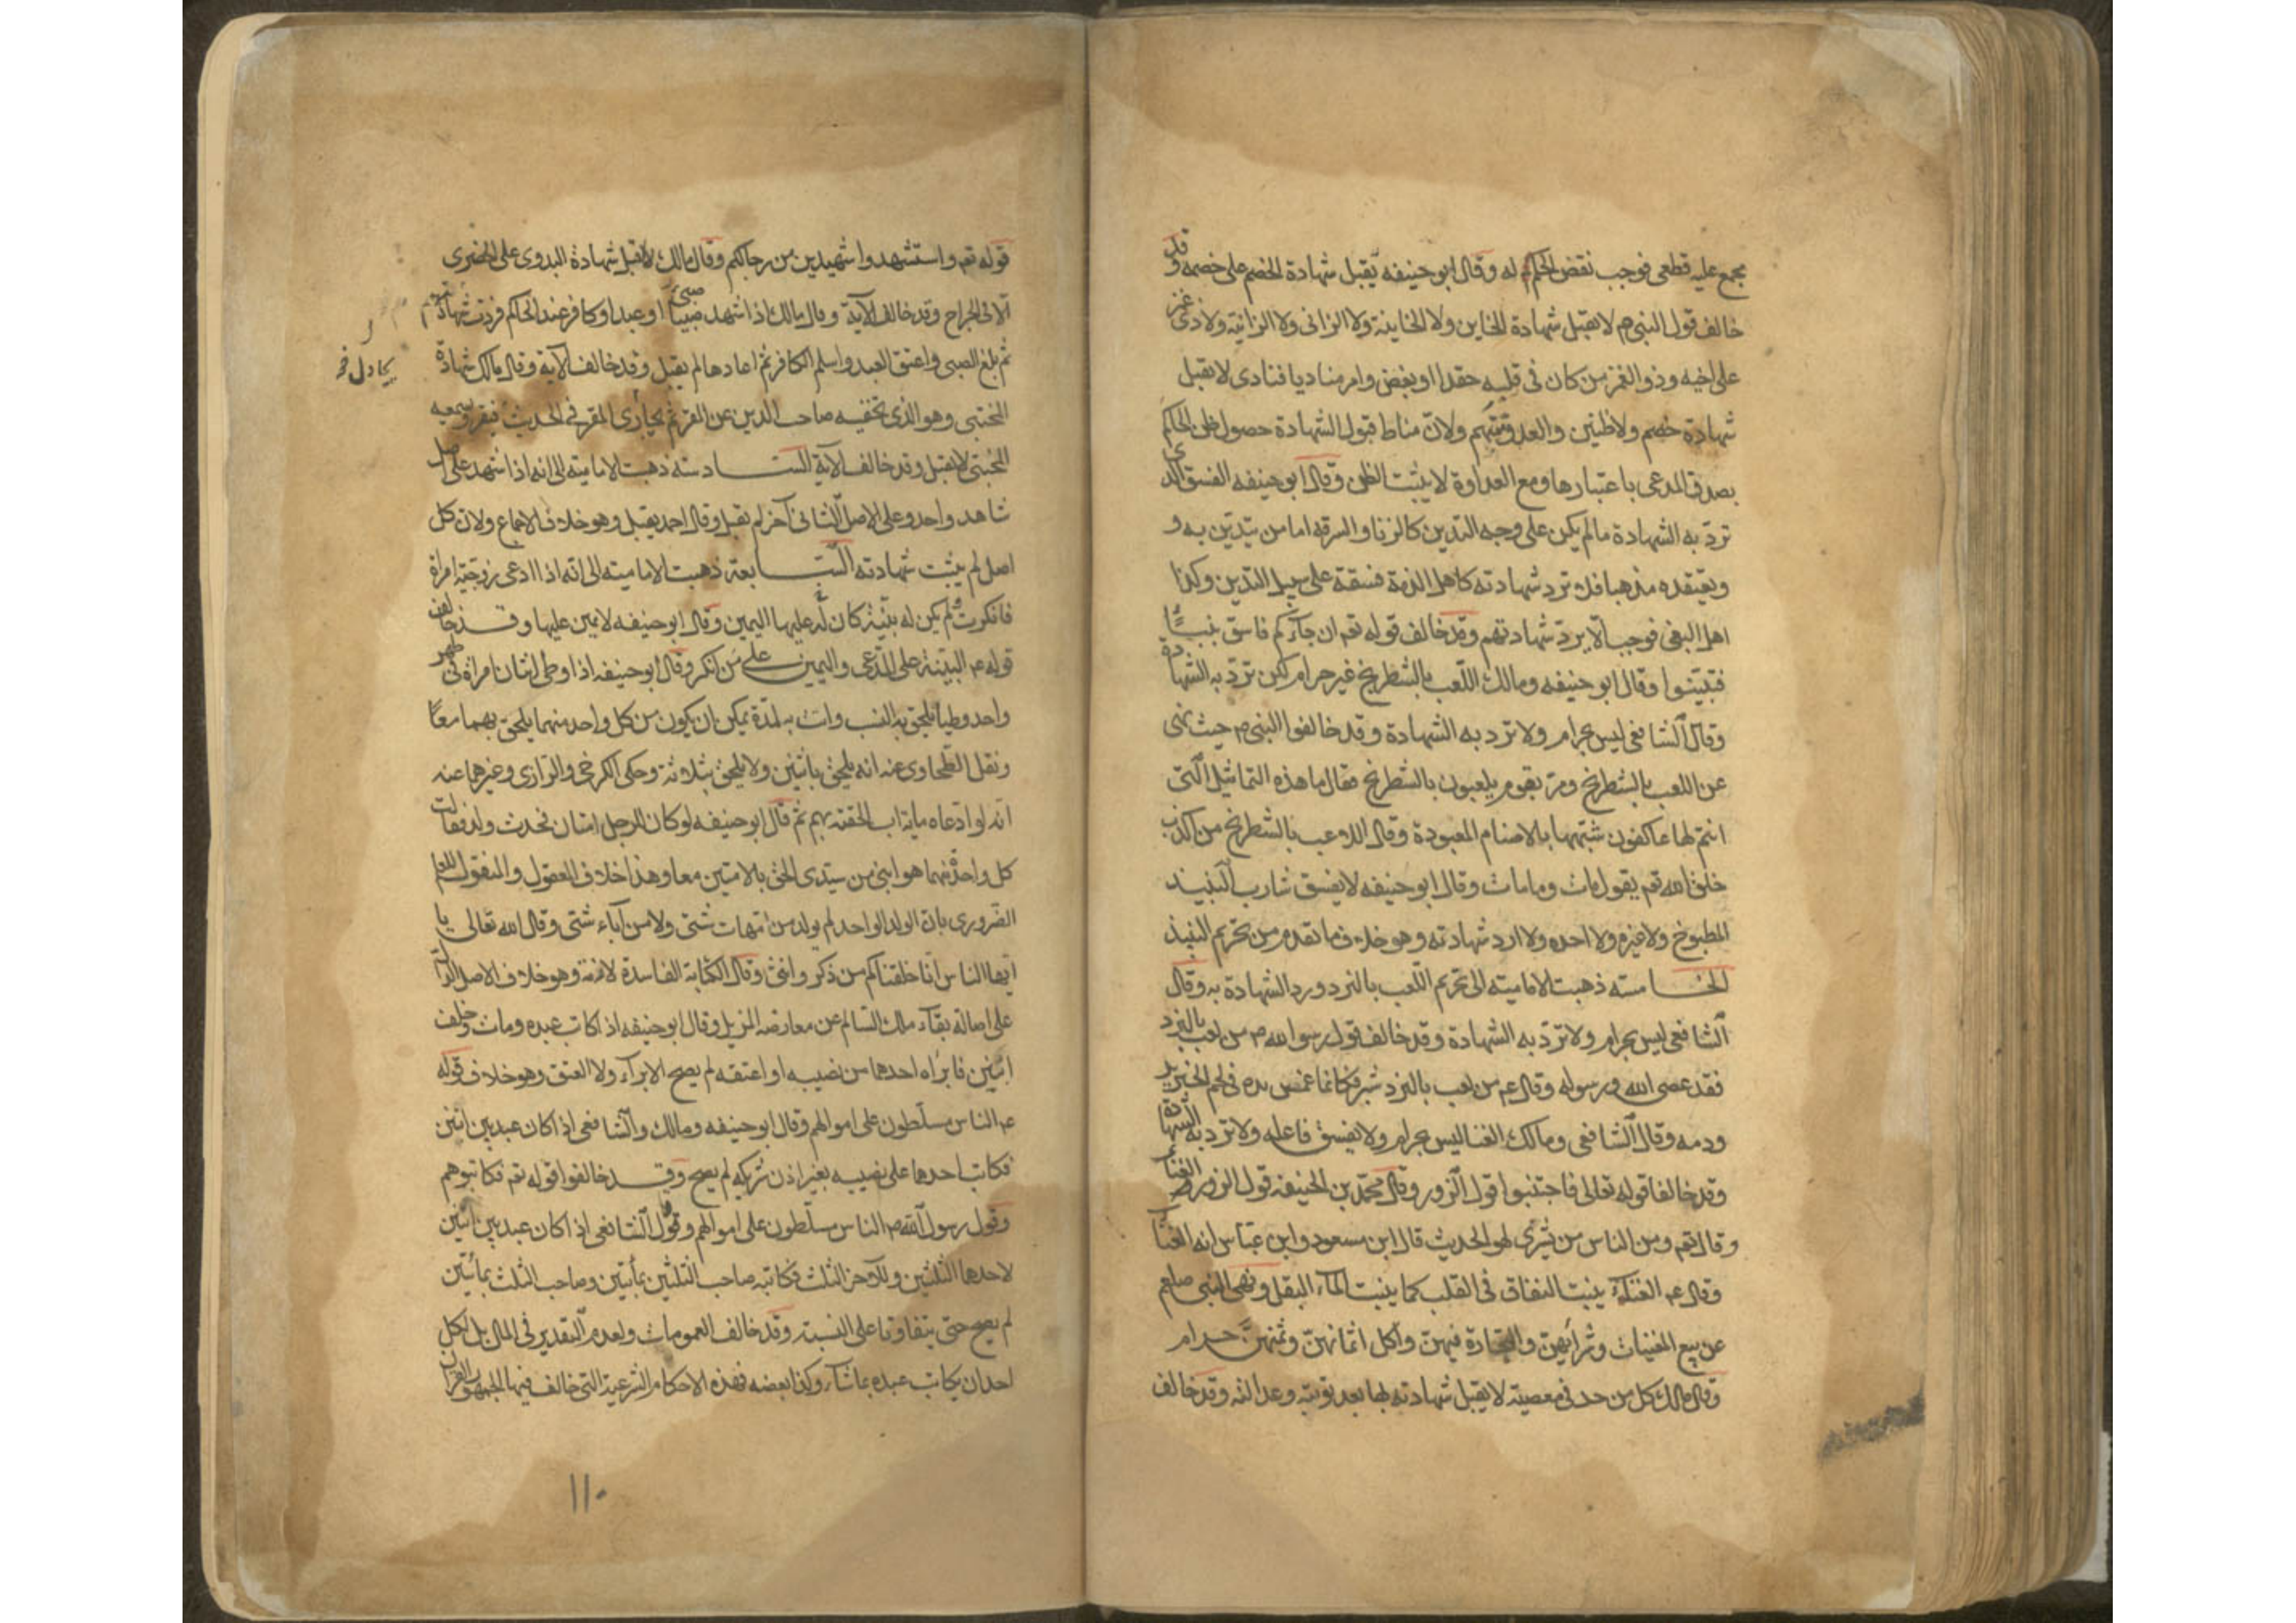 مجمع عليه قطعى فوجب نقض الحكم له وقال ابو حنيفه يقبل شهادة الخصم على خصمه وقد
خالف قول النبى ص لا تقبل شهادة الخاين ولا الخاينة ولا الزانى ولا الزانية ولا ذى غمز
على اخيه وذو الغمز من كان فى قلبه حقدا او بغض وامر مناديا فنادى لا يقبل
شهادة خصم ولا ظنين والعدو متهم ولان مناط قبول الشهادة حصول ظن الحاكم
بصدق المدعى باعتبارها ومع العداوة لا يثبت الظن وقال ابو حنيفه الفسق الذى
تردّ به الشهادة ما لم يكن على وجه التدين كالزنا والسرقه اما من يتدين به و
ويعتقده مذهبا فلا ترد شهادته كاهل الذمة فسقة على سبيل التدين وكذا
اهل البغى فوجب الّا يردّ شهادتهم وقد خالف قوله تعم ان جآءكم فاسق بنبأ
فتبيّنوا وقال ابو حنيفه ومالك اللّعب بالشطرنج غير حرام لكن تردّ به الشهادة
وقال الشافعى ليس بحرام ولا ترد به الشهادة وقد خالفوا النبى ص حيث نهى
عن اللعب بالشطرنج ومرّ بقوم يلعبون بالشطرنج فقال ما هذه التماثيل الّتى
انتم لها عاكفون شبّهها بالاصنام المعبودة وقال اللاعب بالشطرنج من اكذب
خلق الله تعم يقول مات وما مات وقال ابو حنيفه لا يفسق شارب النبيذ
المطبوخ ولا غيره ولا احده ولا ارد شهادته وهو خلاف ما تقدم من تحريم النبيذ
الخامسته ذهبت الاماميته الى تحريم اللّعب بالنرد ورد الشهادة به وقال
الشافعى ليس بحرام ولا تردّ به الشهادة وقد خالف قول رسول الله ص من لعب بالنرد
فقد عصى الله ورسوله وقال عم من لعب بالنرد شير فكانما غمس يده فى لحم الخنزير
ودمه وقال الشافعى ومالك الغنا ليس بحرام ولا يفسق فاعله ولا ترد به الشهادة
وقد خالفا قوله تعالى فاجتنبوا قول الزور وقال محمّد بن الحنيفه قول الزور هو الغناء
وقال تعم ومن الناس من يشترى لهو الحديث قال ابن مسعود وابن عبّاس انه الغناء
وقال عم الغناء ينبت النفاق فى القلب كما ينبت الماء البقل ونهى النبى صلعم
عن بيع المغنيات وشرآئهن والتجارة فيهنّ واكل اثمانهنّ وثمنهنّ حرام
وقال مالك كل من حد فى معصية لا يقبل شهادته بها بعد توبته وعدالته وقد خالف
قوله تعم واستشهدوا شهيدين من رجالكم وقال مالك لا تقبل شهادة البدوى على الحضرى
الّا فى الجراح وقد خالف الآية وقال مالك اذا شهد صبى او عبد او كافر عند الحاكم فردّت شهادتهم
ثم بلغ الصبى واعتق العبد واسلم الكافر ثم اعادها لم يقبل وقد خالف الآية وقال مالك شهادة
المختبى وهو الذى تخفيه صاحب الدين عن المقر ثم يجارى المقر فى الحديث فيقر ويسمعه
المختبى لا يقبل وقد خالف الآية السادسته ذهبت الاماميته الى انه اذا شهد على اصل
شاهد واحد وعلى الاصل الثانى آخر لم يقبل وقال احمد يقبل وهو خلاف الاجماع ولان كل
اصل لم يثبت شهادته السّابعة ذهبت الاماميته الى انه اذا ادعى زوجيّة امراة
فانكرت ولم يكن له بيّنة كان له عليها اليمين وقال ابو حنيفه لا يمين عليها وقد خالف
قوله عم البيّنة على المدّعى واليمين على من انكر وقال ابو حنيفه اذا وطى اثنان امراة فى طهر
واحد وطيا يلحق به النسب واتت به لمدّة يمكن ان يكون من كل واحد منهما يلحق بهما معًا
ونقل الطحاوى عنه انه يلحق باثنين ولا يلحق بثلاثة وحكى الكرخى والرازى وغيرهما عنه
انه لو ادّعاه ماية اب الحقته بهم ثم قال ابو حنيفه لو كان لرجل امتان فحدث ولد فقالت
كل واحدة منهما هو ابنى من سيّدى الحق بالامتين معا وهذا خلاف المعقول والمنقول للعلم
الضرورى بان الولد الواحد لم يولد من امّهات شتى ولا من آباء شتى وقال الله تعالى يا
ايها الناس انّا خلقناكم من ذكر وانثى وقال الكتابة الفاسدة لازمة وهو خلاف الاصل الدال
على اصالة بقآء ملك السّالم عن معارضه المزيل وقال ابو حنيفه اذا كاتب عبده ومات وخلف
ابنين فابراه احدهما من نصيبه او اعتقه لم يصح الابرآء ولا العتق وهو خلاف قوله
عم الناس مسلّطون على اموالهم وقال ابو حنيفه ومالك والشافعى اذا كان عبد بين اثنين
فكاتب احدهما على نصيبه بغير اذن شريكه لم يصح وقد خالفوا قوله تعم فكاتبوهم
وقول رسول الله ص الناس مسلّطون على اموالهم وقال الشافعى اذا كان عبد بين اثنين
لاحدهما الثلثين وللآخر الثلث فكاتبه صاحب الثلثين بمأتين وصاحب الثلث بمأتين
لم يصح حتى يتفاوتا على النسبة وقد خالف العمومات ولعدم التقدير فى المال بل لكل
احد ان يكاتب عبده بما شآء وكذا بعضه فهذه الاحكام الشرعية التى خالف فيها الجمهور القرآن
١١٠